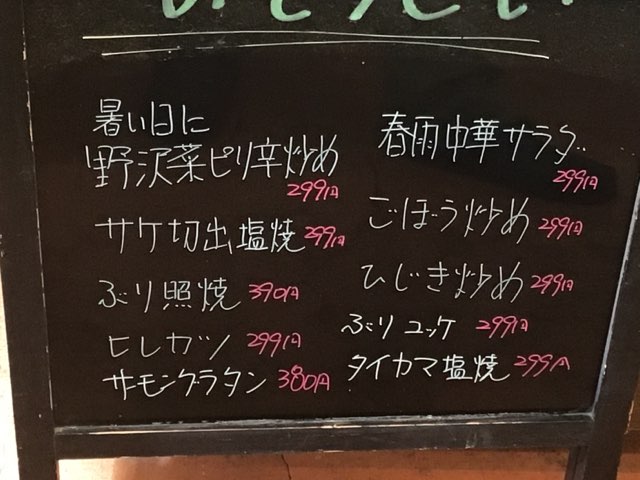 暑い日に
野沢菜ピリ辛炒め
299円
サケ切出塩焼 299円
ぶり照焼 390円
ヒレカツ 299円
サーモングラタン 380円
春雨中華サラダ
299円
ごぼう炒め 299円
ひじき炒め 299円
ぶりユッケ 299円
タイカマ塩焼 299円